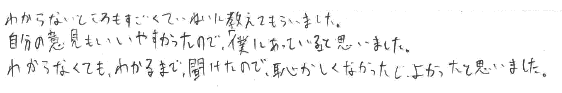 わからないところもすごくていねいに教えてもらいました。
自分の意見もいいやすかったので、僕にあっていると思いました。
わからなくても、わかるまで、聞けたので、恥かしくなかったし、よかったと思いました。